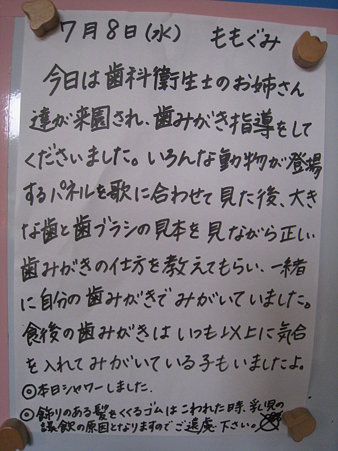 7月8日(水) ももぐみ
今日は歯科衛生士のお姉さん
達が来園され、歯みがき指導をして
くださいました。いろんな動物が登場
するパネルを歌に合わせて見た後、大き
な歯と歯ブラシの見本を見ながら正しい
歯みがきの仕方を教えてもらい、一緒
に自分の歯みがきでみがいていました。
食後の歯みがきはいつも以上に気合
を入れてみがいている子もいましたよ。
◎本日シャワーしました.
◎飾りのある髪をくくるゴムはこわれた時、乳児の
誤飲の原因となりますのでご遠慮下さい。